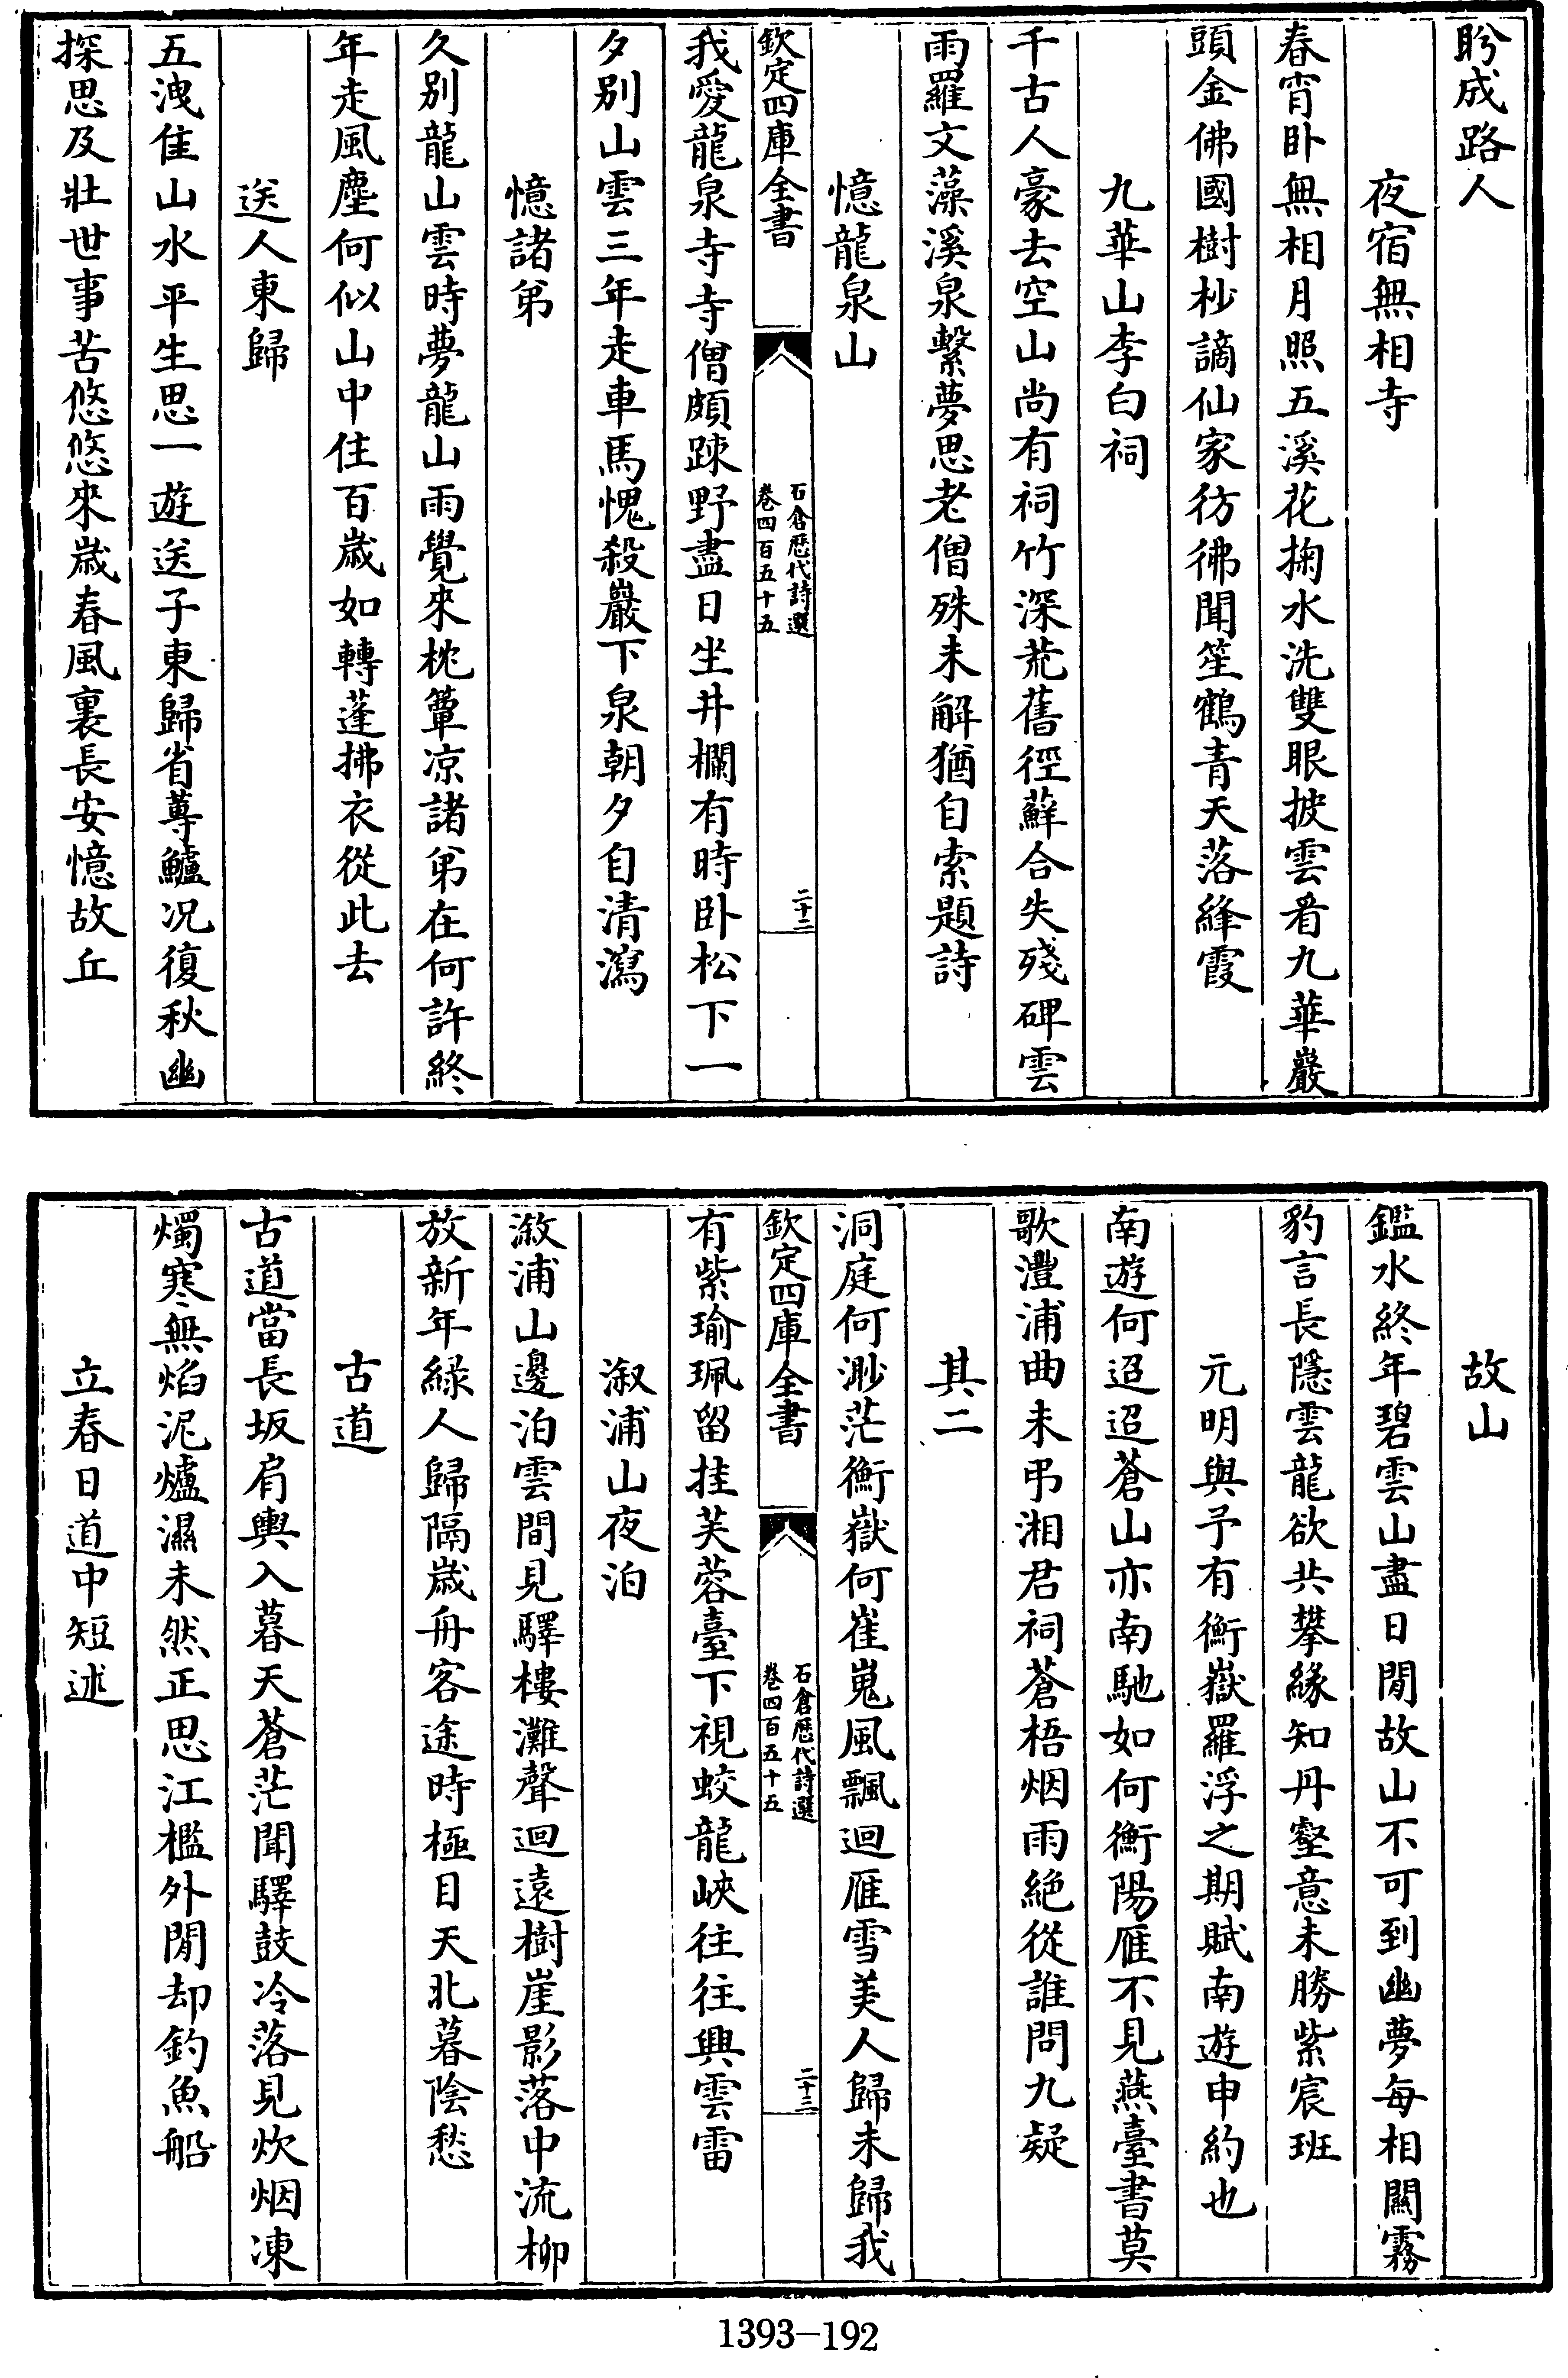 盻成路人
夜宿無相寺
春宵卧無相月照五溪花掬水洗雙眼披雲看九華巖
頭金佛國樹杪謫仙家彷彿聞笙鶴青天落絳霞
九華山李白祠
千古人豪去空山尚有祠竹深荒舊徑蘚合失殘碑雲
雨羅文藻溪泉繫夢思老僧殊未解猶自索題詩
憶龍泉山
欽定四庫全書
石倉歷代詩選
卷四百五十五
二十二
我愛龍泉寺寺僧頗踈野盡日坐井欄有時卧松下一
夕别山雲三年走車馬愧殺巖下泉朝夕自清瀉
憶諸弟
久别龍山雲時夢龍山雨覺來枕簟凉諸弟在何許終
年走風塵何似山中住百歲如轉蓬拂衣從此去
送人東歸
五洩佳山水平生思一遊送子東歸省蓴鱸况復秋幽
探思及壯世事苦悠悠來歲春風裏長安憶故丘
故山
鑑水終年碧雲山盡日閒故山不可到幽夢每相關霧
豹言長隱雲龍欲共攀緣知丹壑意未勝紫宸班
元明與予有衡嶽羅浮之期賦南遊申約也
南遊何迢迢蒼山亦南馳如何衡陽雁不見燕臺書莫
歌澧浦曲未弔湘君祠蒼梧烟雨絶從誰問九疑
其二
洞庭何渺茫衡嶽何崔嵬風飄迴雁雪美人歸未歸我
欽定四庫全書
石倉歷代詩選
卷四百五十五
二十三
有紫瑜珮留挂芙蓉臺下視蛟龍峽往往興雲雷
溆浦山夜泊
溆浦山邊泊雲間見驛樓灘聲迴遠樹崖影落中流柳
放新年緑人歸隔歲舟客途時極目天北暮陰愁
古道
古道當長坂肩輿入暮天蒼茫聞驛鼓冷落見炊烟凍
燭寒無焰泥爐濕未然正思江檻外閒却釣魚船
立春日道中短述
1393—192